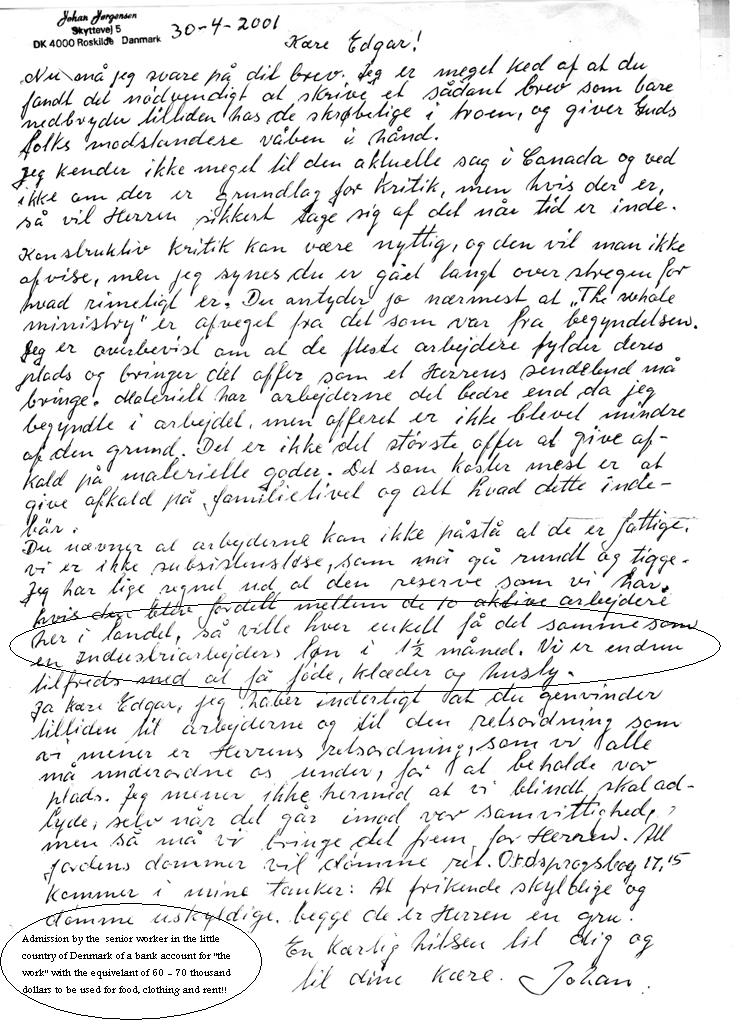 Johan Jørgensen
Skyttevej 5
DK 4000 Roskilde Danmark
30-4-2001
Kære Edgar!
Nu må jeg svare på dit brev. Jeg er meget ked af at du
fandt det nödvendigt at skrive et sådant brev som bare
nedbryder tilliden hos de skrøbelige i troen, og giver Guds
folks modstandere våben i hånd.
Jeg kender ikke meget til den aktuelle sag i Canada og ved
ikke om der er grundlag for kritik, men hvis der er,
så vil Herren sikkert tage sig af det når tid er inde.
Konstruktiv kritik kan være nyttig, og den vil man ikke
afvise, men jeg synes du er gået langt over stregen for
hvad rimeligt er. Du antyder jo nærmest at "The whole
ministry" er afveget fra det som var fra begyndelsen.
Jeg er overbevist om at de fleste arbejdere fylder deres
plads og bringer det offer som et Herrens sendebud må
bringe. Materielt har arbejderne det bedre end da jeg
begyndte i arbejdet, men offeret er ikke blevet mindre
af den grund. Det er ikke det største offer at give af-
kald på materielle goder. Det som koster mest er at
give afkald på familielivet og alt hvad dette inde-
bär.
Du nævner at arbejderne kan ikke påstå at de er fattige.
Vi er ikke subsistensløse, som må gå rundt og tigge.
Jeg har lige regnet ud at den reserve som vi har,
hvis den blev fordelt mellem de 10 aktive arbejdere
her i landet, så ville hver enkelt få det samme som
en Industriarbejders løn i 1½ måned. Vi er endnu
tilfreds med at få föde, klæder og husly.
Ja kære Edgar, jeg håber inderligt at du genvinder
tilliden til arbejderne og til den retsordning som
vi mener er Herrens retsordning, som vi alle
må underordne os under, for at beholde vor
plads. Jeg mener ikke hermed at vi blindt skal ad-
lyde, selv når det går imod vor samvittighed,
men så må vi bringe det frem for Herren. All
Jordens dommer vil dömme ret. Ordsprogsbog 17,15
kommer i mine tanker: At frikende skyldige og
dømme uskyldige, begge de er Herren en gru.
En kærlig hilsen til dig og
til dine kære. Johan.
Admission by the senior worker in the little
country of Denmark of a bank account for "the
work" with the equivelant of 60 – 70 thousand
dollars to be used for food, clothing and rent!!